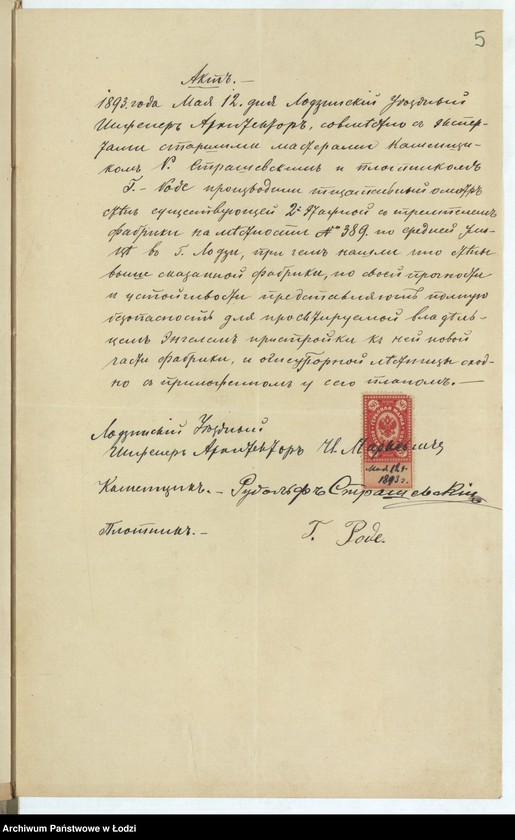 5
Актъ. —
1893 года Мая 12 дня Лодзинскій Уѣздный
Инженеръ Архитекторъ, совмѣстно с экспер-
тами старшими мастерами каменщи-
комъ Р. Страшевскимъ и плотникомъ
Г. Роде производили тщательный осмотръ
стѣнъ существующей 2х этажной со
фабрики на мѣстности № 389 по средней ули-
цѣ въ г. Лодзи, при чемъ нашли что стѣны
выше сказанной фабрики, по своей прочности
и устойчивости представляютъ полную
безопасность для проектируемой владѣль-
цемъ Энгелемъ пристройки къ ней новой
части фабрики, и лѣстницы сход-
но съ приложеннымъ у сего планомъ. —
Лодзинскій Уѣздный
Инженеръ Архитекторъ
Мая 12 д.
1893 г.
Каменщикъ. — Рудольфъ Страшевскій
Плотникъ. — Г. Роде.
Archiwum Państwowe w Łodzi